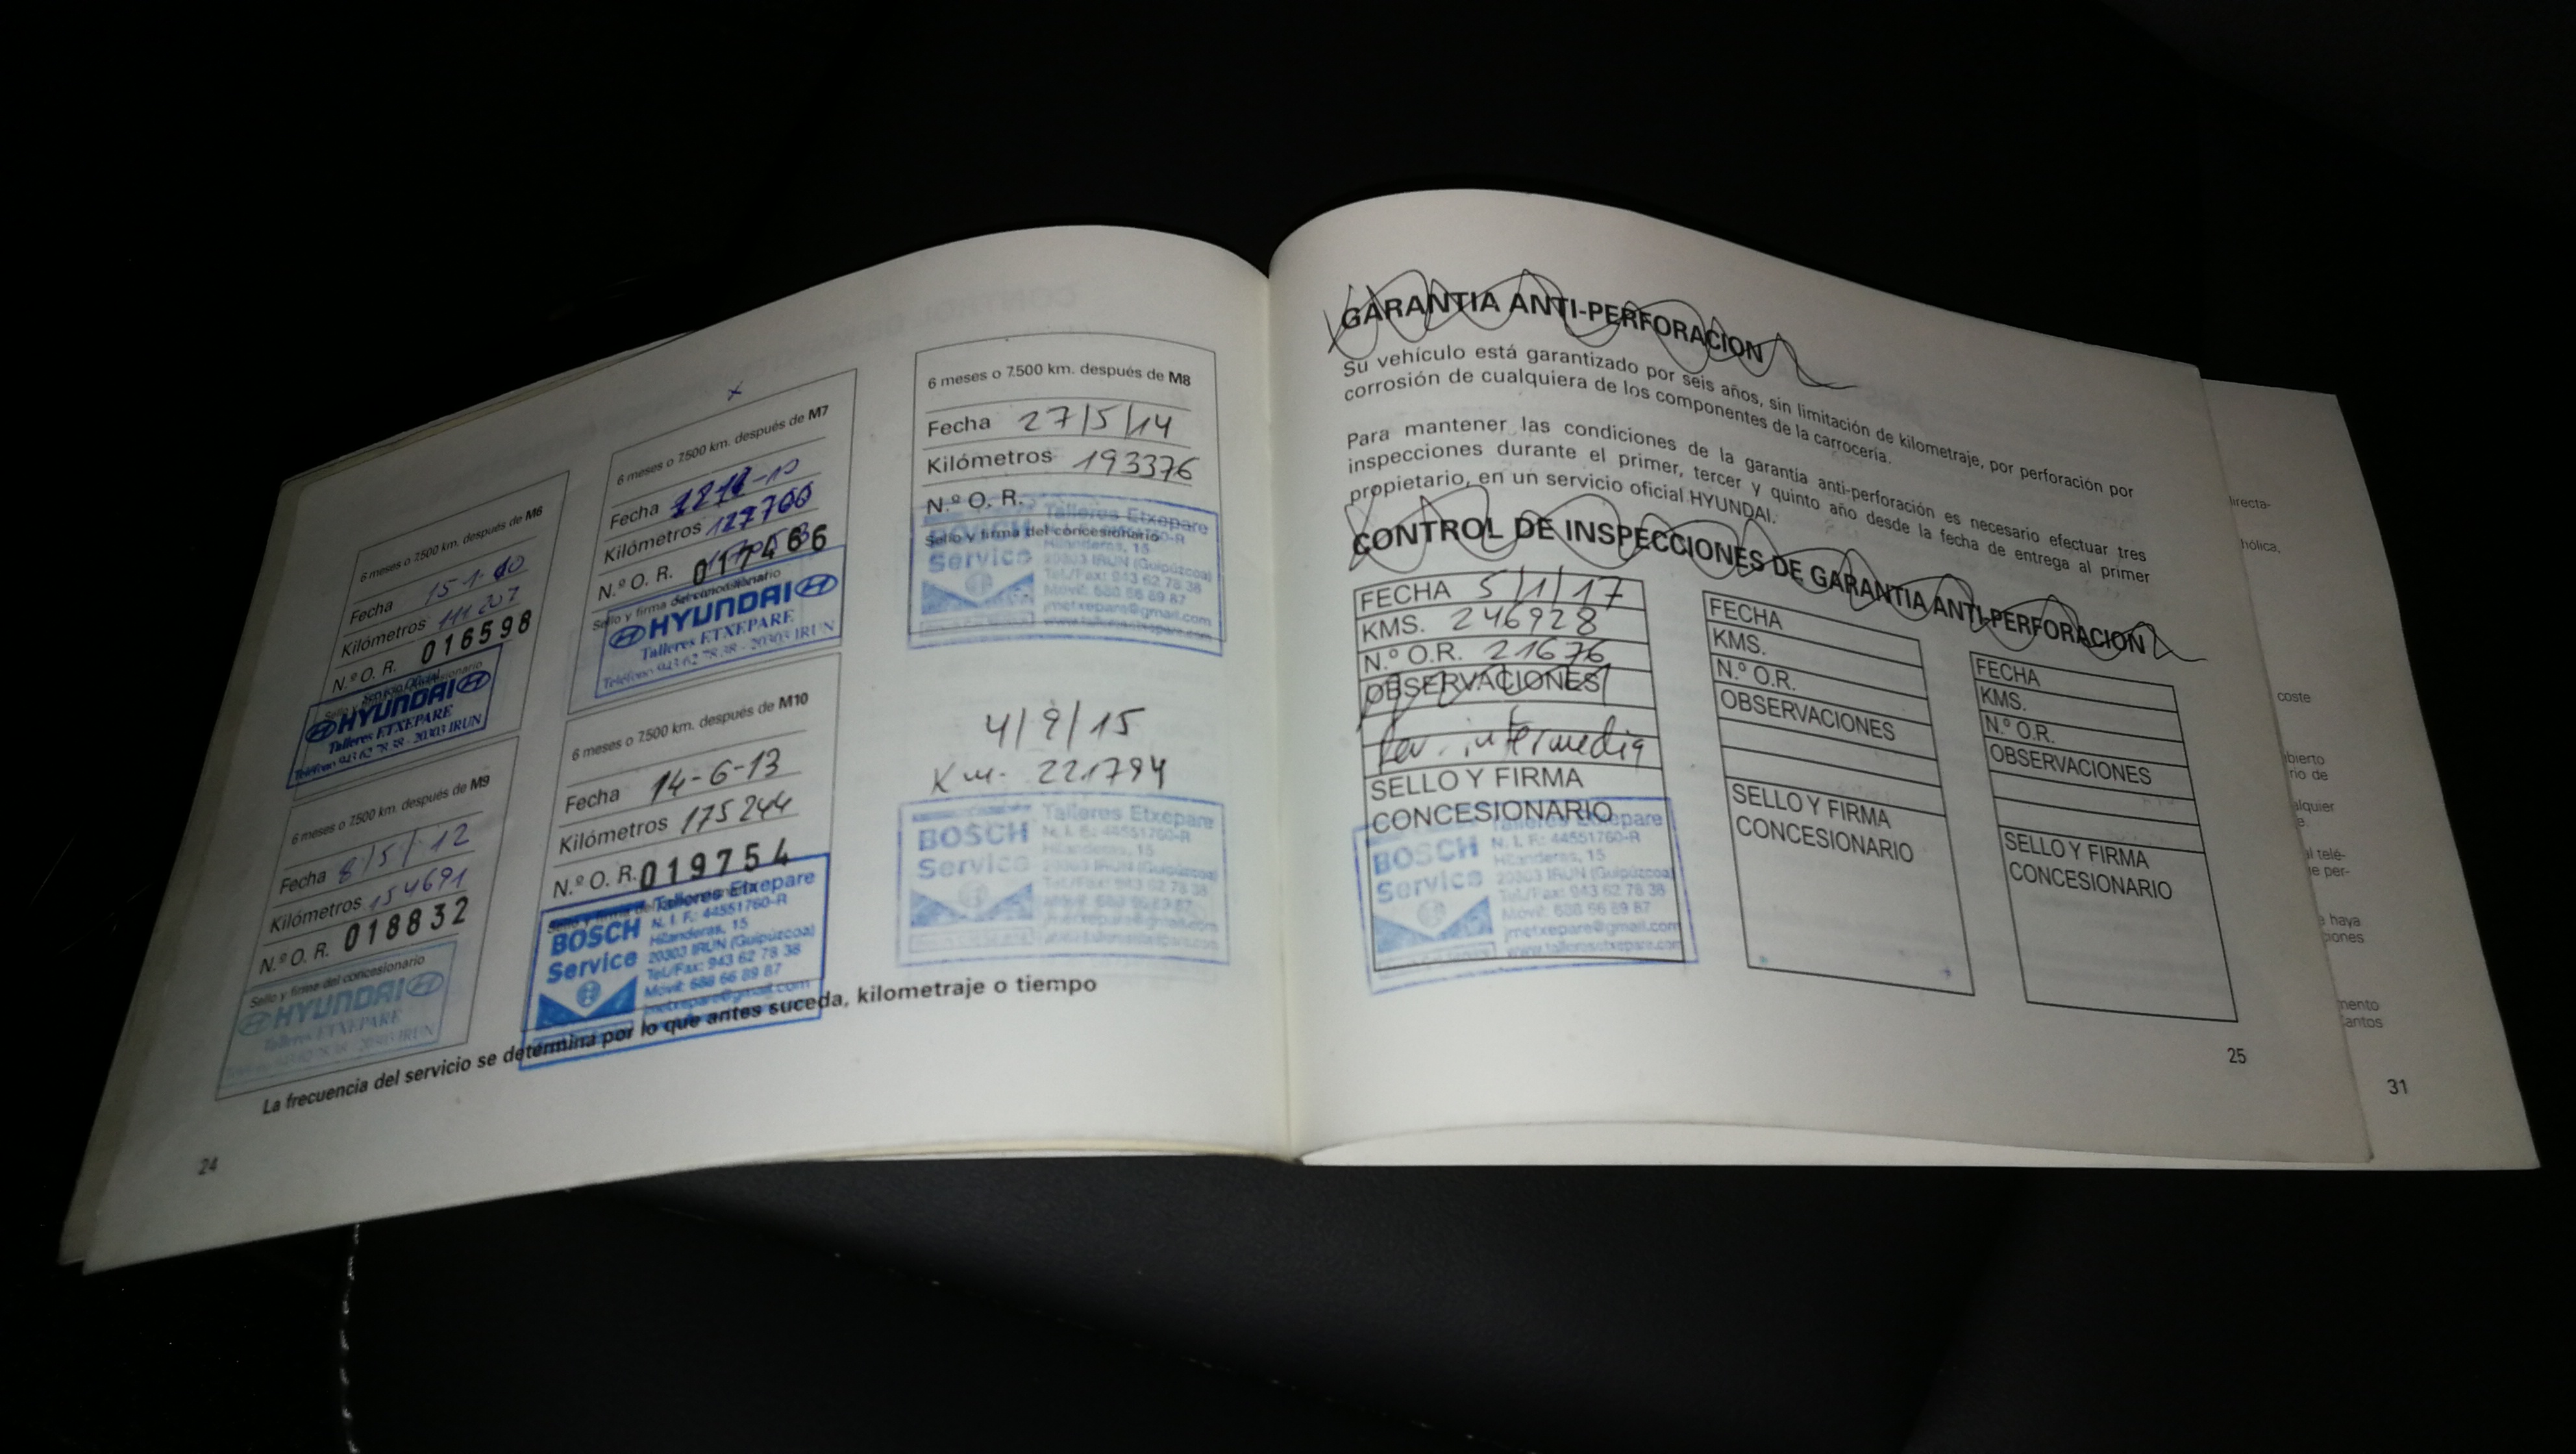 6 meses o 7.500 km. después de M6
Fecha 15-1-10
Kilómetros 111 207
N.º O. R. 016598
Servicio Oficial
HYUNDAI
Talleres ETXEPARE
Teléfono 943 62 78 38 - 20303 IRUN
6 meses o 7.500 km. después de M7
Fecha
Kilómetros 127700
N.º O. R. 017466
Sello y firma del concesionario
HYUNDAI
Talleres ETXEPARE
Teléfono 943 62 78 38 - 20303 IRUN
6 meses o 7.500 km. después de M8
Fecha 27/5/14
Kilómetros 193376
N.º O. R.
Sello y firma del concesionario
BOSCH
Service
Talleres Etxepare
Hilanderas, 15
20303 IRUN (Guipúzcoa)
Tel./Fax: 943 62 78 38
Móvil: 688 66 89 87
jmetxepare@gmail.com
www.talleresetxepare.com
6 meses o 7.500 km. después de M9
Fecha 8/5/12
Kilómetros 154691
N.º O. R. 018832
Sello y firma del concesionario
HYUNDAI
Talleres ETXEPARE
943 62 78 38 - 20303 IRUN
6 meses o 7.500 km. después de M10
Fecha 14-6-13
Kilómetros 175244
N.º O. R. 019754
BOSCH
Service
Talleres Etxepare
N. I. F.: 44551760-R
Hilanderas, 15
20303 IRUN (Guipúzcoa)
Tel./Fax: 943 62 78 38
Móvil: 688 66 89 87
jmetxepare@gmail.com
4/9/15
Km. 221794
BOSCH
Service
Talleres Etxepare
N. I. F.: 44551760-R
Hilanderas, 15
20303 IRUN (Guipúzcoa)
Tel./Fax: 943 62 78 38
La frecuencia del servicio se determina por lo que antes suceda, kilometraje o tiempo
24
GARANTIA ANTI-PERFORACION
Su vehículo está garantizado por seis años, sin limitación de kilometraje, por perforación por
corrosión de cualquiera de los componentes de la carrocería.
Para mantener las condiciones de la garantía anti-perforación es necesario efectuar tres
inspecciones durante el primer, tercer y quinto año desde la fecha de entrega al primer
propietario, en un servicio oficial HYUNDAI.
CONTROL DE INSPECCIONES DE GARANTIA ANTI-PERFORACION
FECHA 5/1/17
KMS. 246928
N.º O.R. 21676
OBSERVACIONES
Rev. intermedia
SELLO Y FIRMA
CONCESIONARIO
BOSCH
Service
Talleres Etxepare
N. I. F.: 44551760-R
Hilanderas, 15
20303 IRUN (Guipúzcoa)
Tel./Fax: 943 62 78 38
Móvil: 688 66 89 87
jmetxepare@gmail.com
www.talleresetxepare.com
FECHA
KMS.
N.º O.R.
OBSERVACIONES
SELLO Y FIRMA
CONCESIONARIO
FECHA
KMS.
N.º O.R.
OBSERVACIONES
SELLO Y FIRMA
CONCESIONARIO
25
coste
31